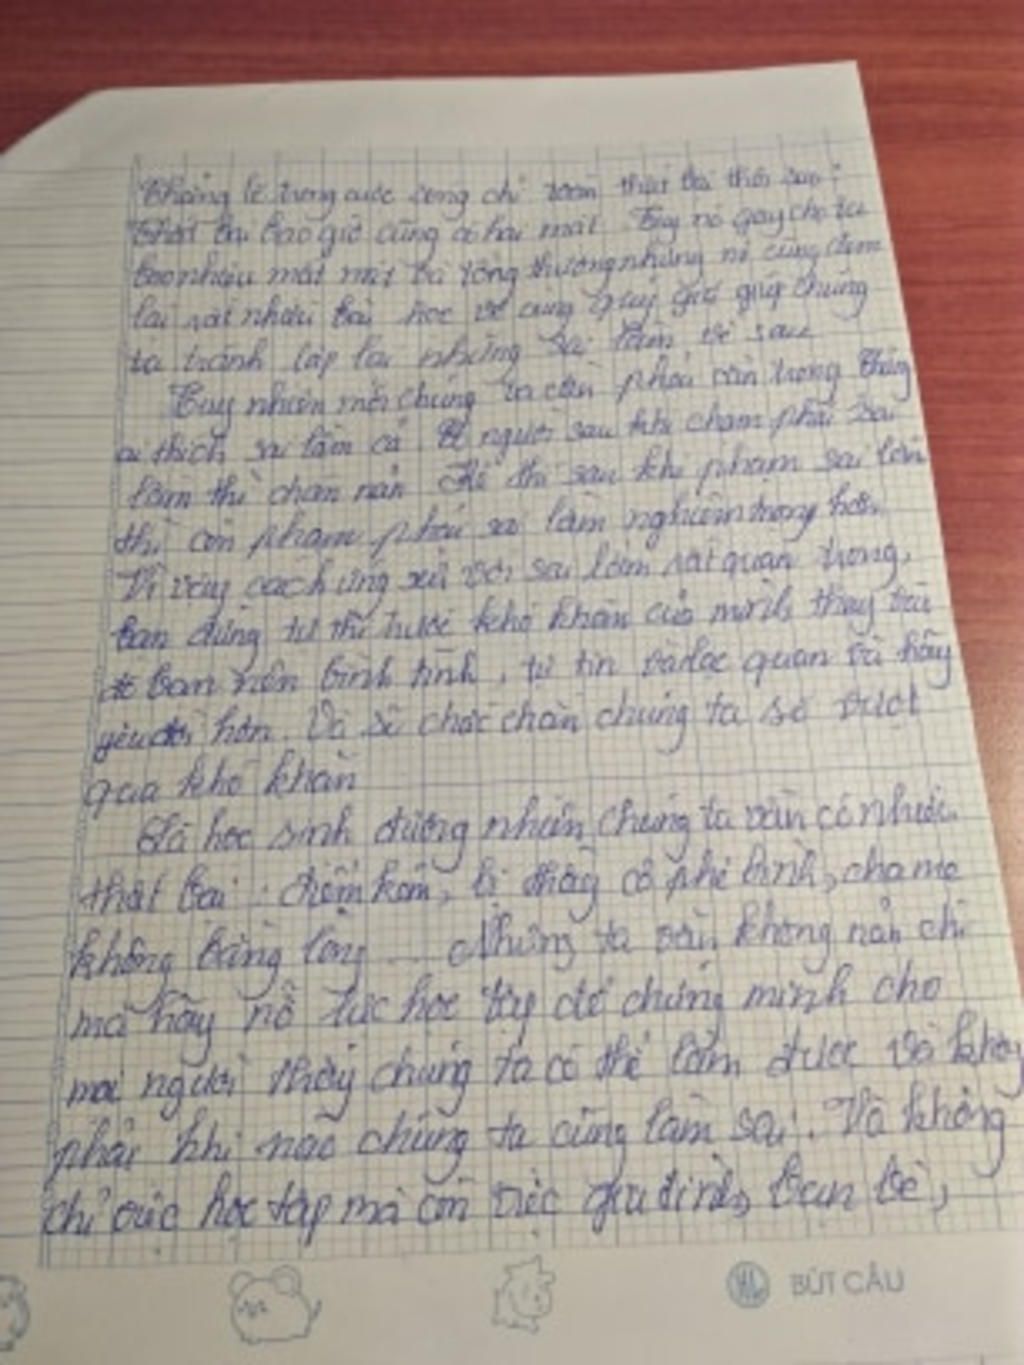 Chẳng lẽ trong cuộc sống chỉ toàn thất bại thôi sao?
Thất bại bao giờ cũng có hai mặt. Tuy nó gây cho ta
bao nhiêu mất mát và tổng thương nhưng nó cũng đem
lại rất nhiều bài học vô cùng quý giá giúp chúng
ta tránh lặp lại những sai lầm về sau
Tuy nhiên mỗi chúng ta cần phải cẩn trọng Chẳng
ai thích sai lầm cả người sau khi phạm phải sai
lầm thì chán nản Kẻ thì sau khi phạm sai lầm
thì còn phạm phải sai lầm nghiêm trọng hơn
Vì vậy cách ứng xử với sai lầm rất quan trọng,
bạn đừng từ thì trước khó khăn của mình thay vào
đó bạn nên bình tĩnh, tự tin và lạc quan và hãy
yêu đời hơn. Và sẽ chắc chắn chúng ta sẽ vượt
qua khó khăn
Là học sinh đương nhiên chúng ta vẫn có những
thất bại: điểm kém, bị thầy cô phê bình, cha mẹ
không bằng lòng ... Nhưng ta vẫn không nản chí
mà hãy nỗ lực học tập để chứng minh cho
mọi người thấy chúng ta có thể làm được và không
phải khi nào chúng ta cũng làm sai. Và không
chỉ việc học tập mà còn việc gia đình, bạn bè,
BÚT CÂU